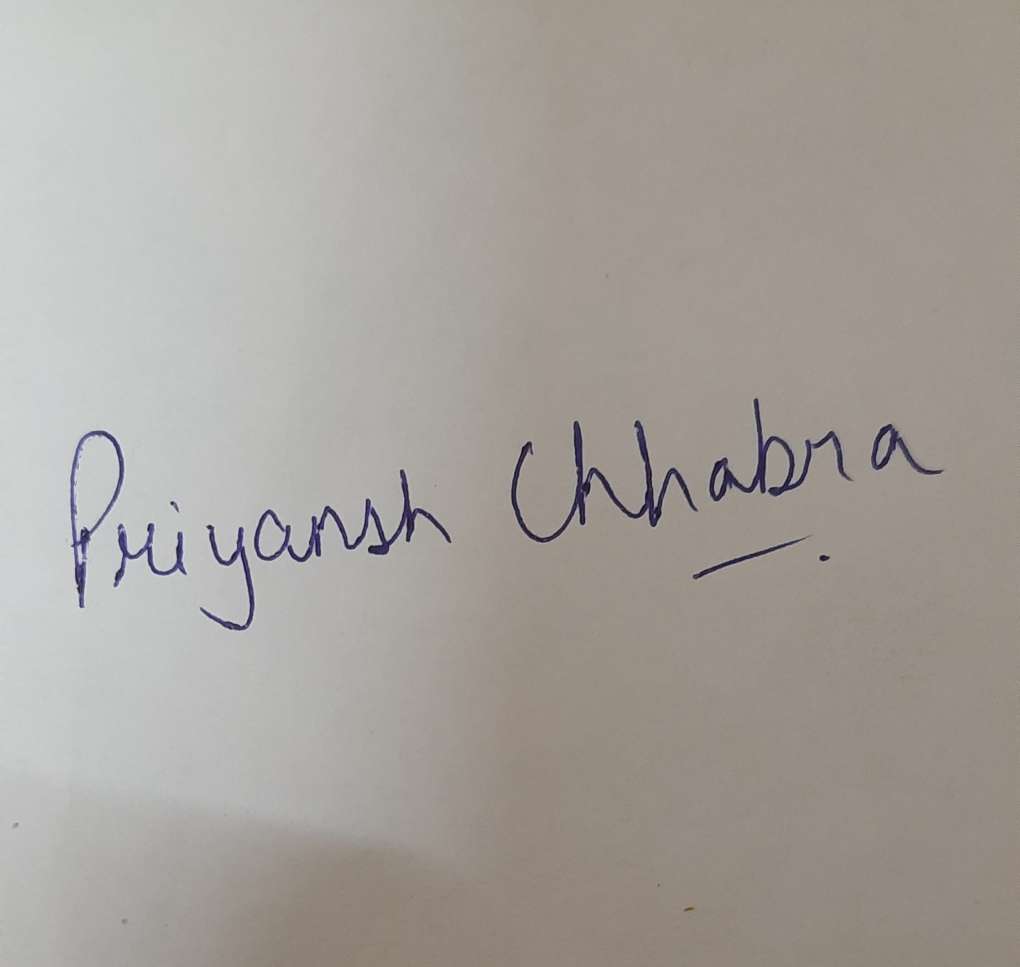 Priyansh Chhabra